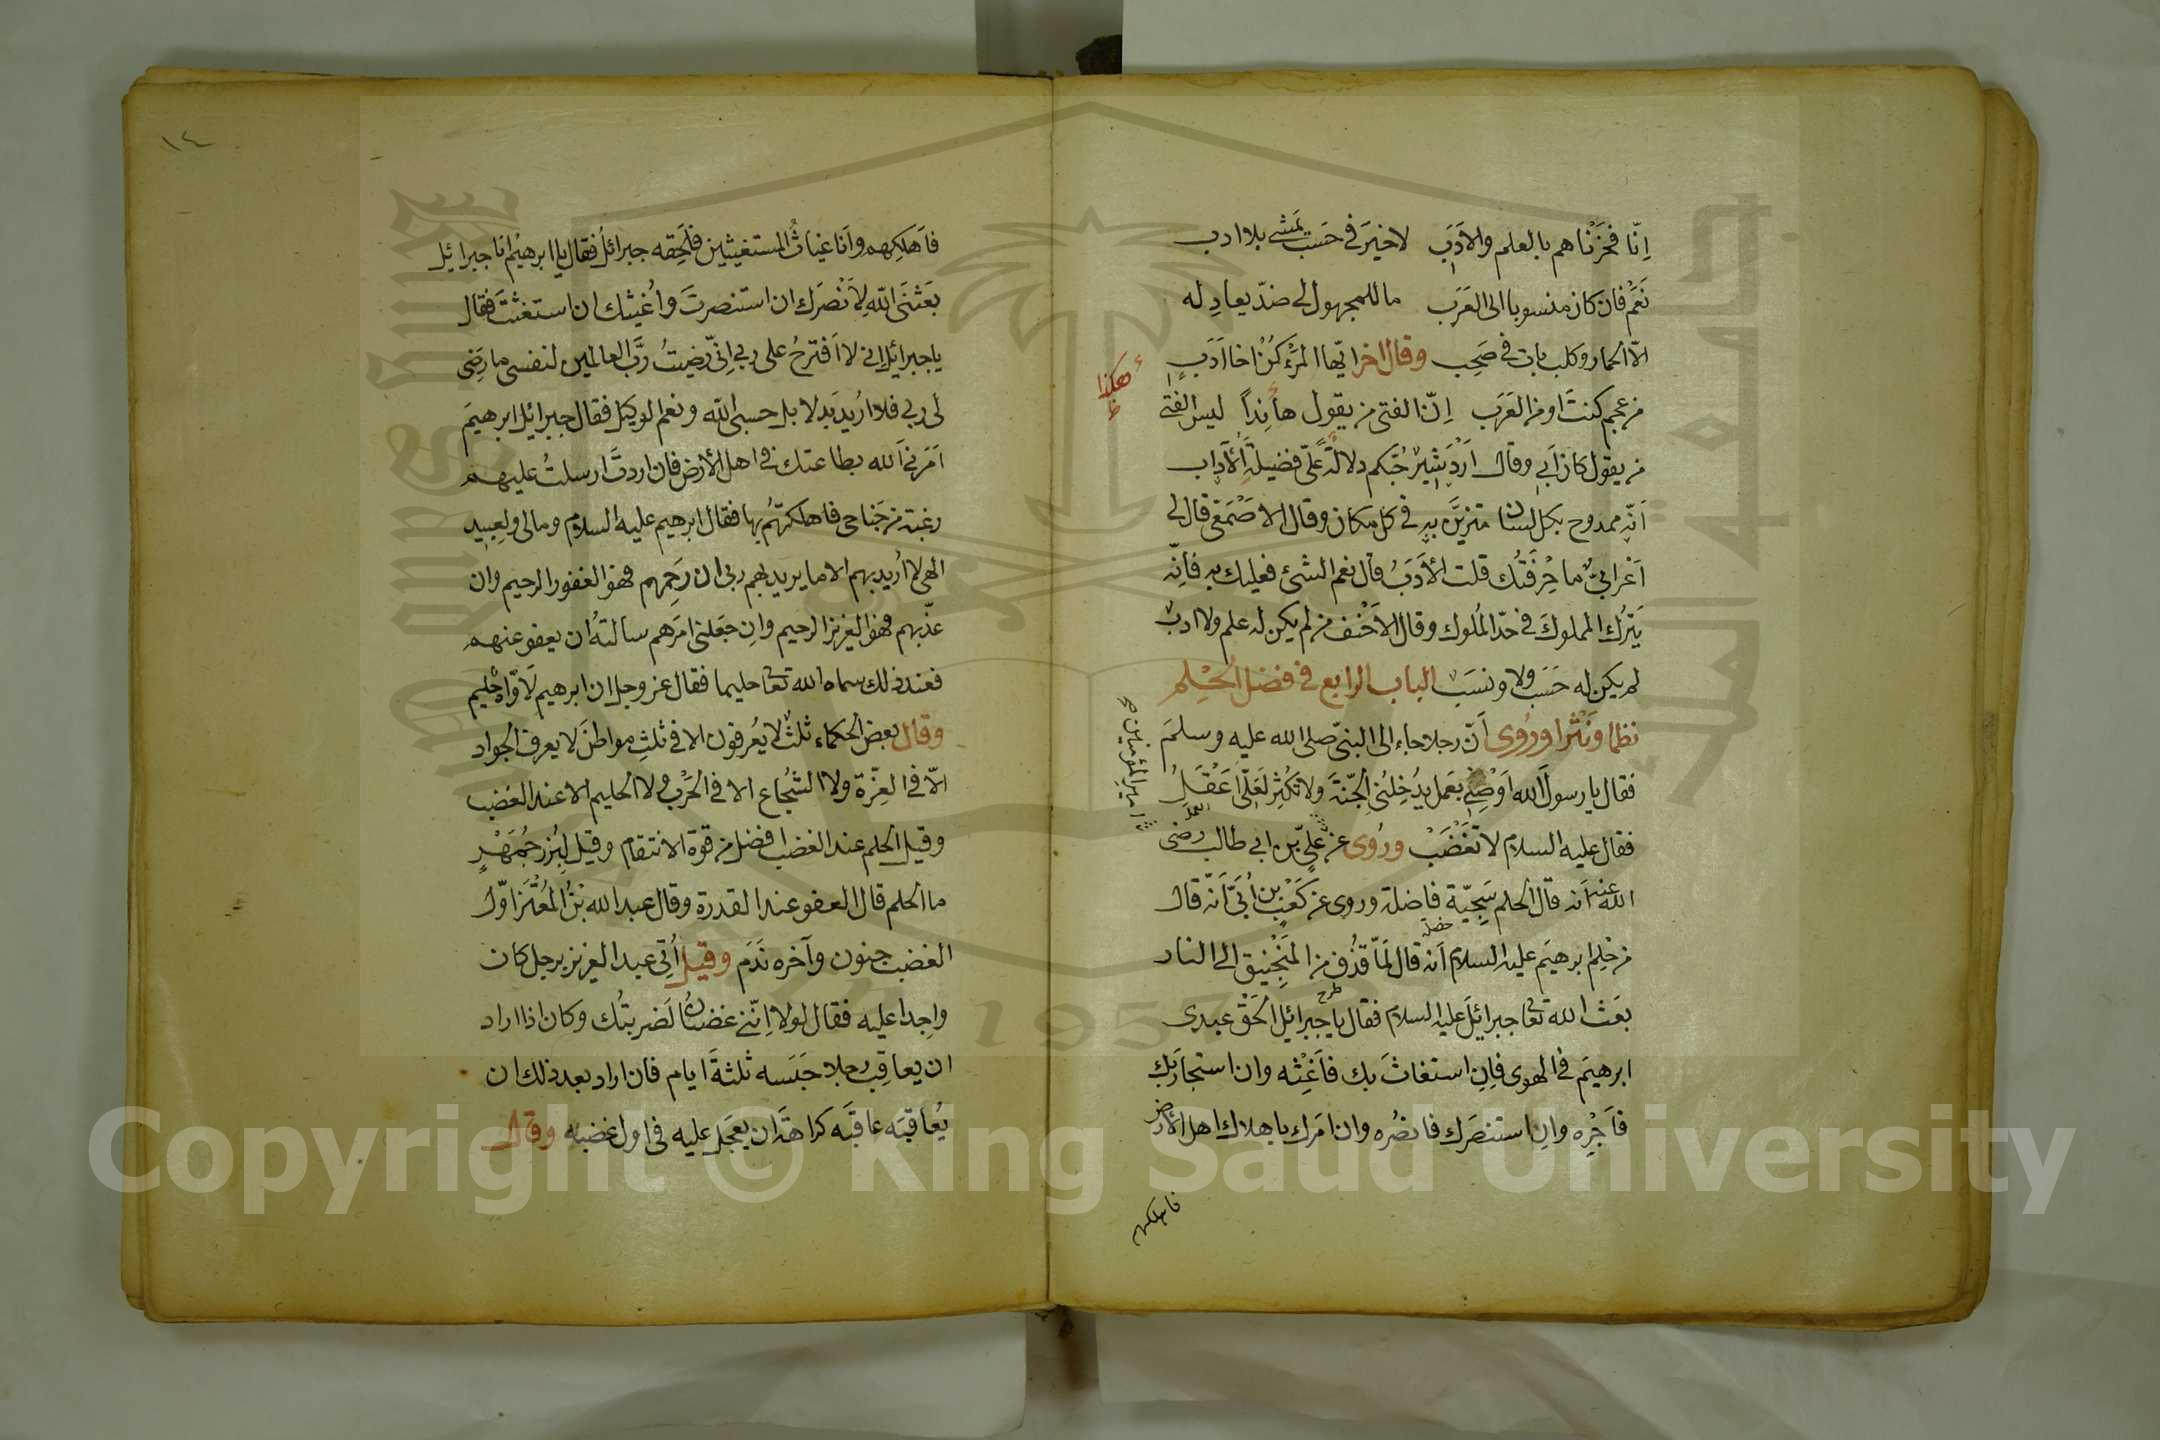 اِنّا فخَرْناهم بالعلم والاَدَبَ لاخيرَ في حَسَب يَمشي بلا ادب
نَعَم فان كان منسوبا الى العَرَب ما للمجهول لي ضدّ يعادِله
الاّ الحمار وكلب بات في صَحِب وقال اخر ايّها المَرْء كُنْ اخا اَدَبٍ
من عجم كنتَ او من العَرَب اِنّ الفتى من يقول هأنذاً ليس الفتى
هكذا
من يقول كان اَبي وقال اَرْدَشيرُ حُبّكم دلالةً على فضيلة الآداب
اَنّه ممدوح بكل لسان متزيَّن به في كل مكان وقال الاصْمَعي قال لي
اَعْرابيٌّ ما حِرْفَتُك قلت الاَدَبُ قال نعم الشئ فعليك به فاِنّه
يَتْرك المملوكَ في حدّ المُلوك وقال الاَحْنف من لم يكن له علم ولا ادبٌ
لم يكن له حَسَب ولا ونسَبٌ الباب الرابع في فضل الحِلم
نظما ونَثْرا ورُوى اَنّ رجلا جاء الى النبيّ صلى الله عليه وسلم
فقال يا رسول الله اَوْصِني بعَمل يُدْخِلُني الجنّةَ ولا تُكْثِر لعَلّى اَعْقَلُ
فقال عليه السلام لا تَغضَبْ ورُوى عن عليّ بن ابي طالب رضى
امير المؤمنين صح
الله عنه اَنه قال الحلم سَجيّة فاضلة وروى عن كَعْبِ بن اُبَيّ اَنّه قال
خصلة
من حِلم ابرهيَم عليه السلام اَنه قال لمّا قذُف من المَنْجَنيق الى النار
طرح
بعَث الله تعا جبرائيلَ عليه السلام فقال يا جبرائيل الحَقْ عبدى
ابرهيَم في الهوى فاِنِ استغاثَ بك فاَغِثْه وان استجارَبِك
فاَجِرْه واِنِ استنصَرك فانصُره وان امَرك باهلاك اهل الاَرض
فاهلكهم
١٤
فاَهلكهم واَنا غياثُ المستغيثين فلَحِقه جبرائلُ فقال يا ابرهيُم انا جبرائيل
بَعَثنَى الله لِاَنْصَرك ان استنصرتَ واُغيثك ان استغثتَ فقال
يا جبرائيل اِني لا اَقترحُ على ربي اِنّي رضيتُ ربَّ العالمين لنفسي ما رَضِى
لى ربي فلا اُريد بَدلا بل حسبى الله ونعم الوكيل فقال جبرائيل ابرهيَم
اَمَرني اَلله بطاعتك في اهل الاَرض فان اردتَّ ارسلتُ عليهم
رغبة من جَناحى فاهلكتهُم بها فقال ابرهيم عليه السلام ومالى ولِعبيدِ
الهى لا اُريد بهم الا ما يريد بهم ربى ان رَحِمهم فهو الغفور الرحيم وان
عذّبهم فهو العزيز الرحيم واِن جعَلنى امرَهم سالتهُ ان يعفو عنهم
فعند ذلك سماه الله تعا حليما فقال عز وجل ان ابرهيم لاَوّاه حليم
وقال بعض الحكماء ثلثٌ لا يُعرفون الا في ثلثِ مواطنَ لا يعرف الجواد
الاّ في العِزّة ولا الشُجاع الا في الحَرْب ولا الحليم الا عند الغضب
وقيل الحلم عند الغضب افضل من قوة الانتقام وقيل لِبُزرجُمْهرٍ
ما الحلم قال العفو عند القدرة وقال عبد الله بْنُ المُعْتَز اوّل
الغضب جنون وآخره نَدَم وقيل اُتِى عبد العزيز برجل كان
واجدا عليه فقال لولا اِنّني غضبانُ لَضربتُك وكان اذا اراد
ان يعاقِب رجلا حَبَسه ثلثةَ ايام فان اراد بعد ذلك ان
يُعاقِبَه عاقبَه كراهتهَ ان يعجَل عليه في اول غضبه وقال